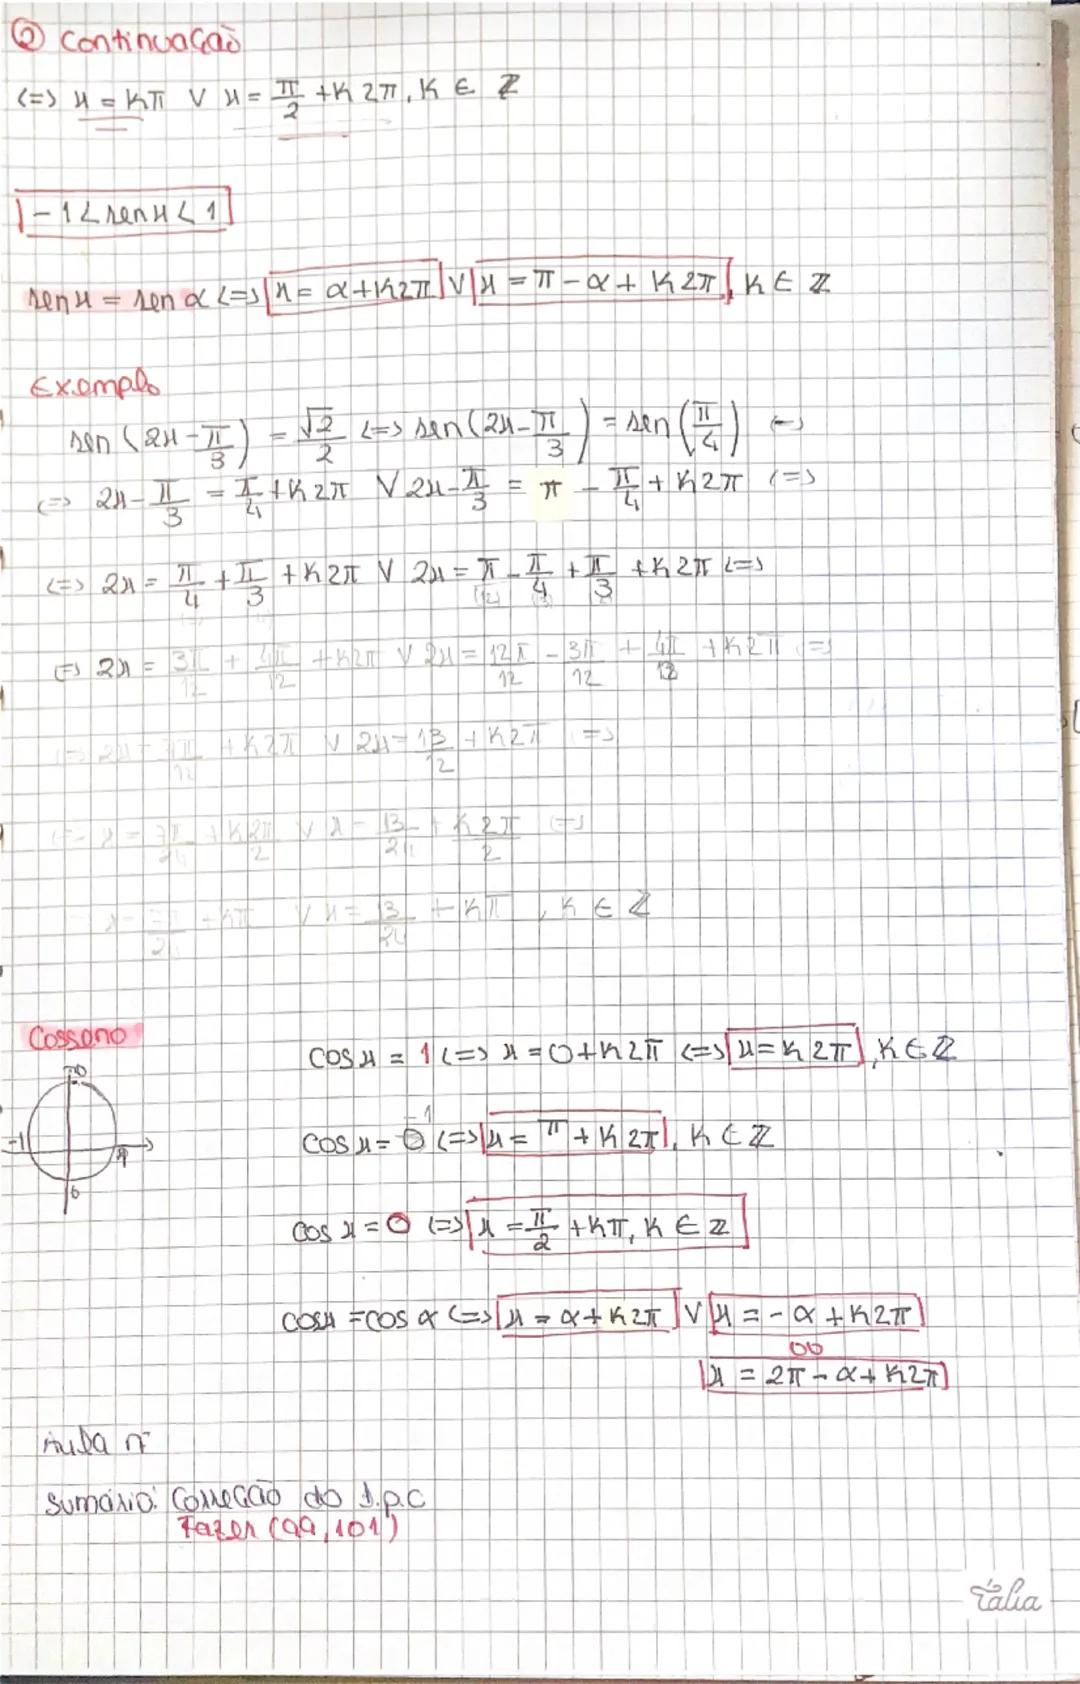 ② Continuação
<=> x = kπ ∨ x = π/2 + k2π, k ∈ ℤ
-1 < sen x < 1
sen x = sen α <=> x = α + k2π ∨ x = π - α + k2π, k ∈ ℤ
Exemplo
sen (2x - π/3) = √2/2 <=> sen (2x - π/3) = sen (π/4) <=>
<=> 2x - π/3 = π/4 + k2π ∨ 2x - π/3 = π - π/4 + k2π <=>
<=> 2x = π/4 + π/3 + k2π ∨ 2x = π - π/4 + π/3 + k2π <=>
(12) (3)
<=> 2x = 3π/12 + 4π/12 + k2π ∨ 2x = 12π/12 - 3π/12 + 4π/12 + k2π <=>
<=> 2x = 7π/12 + k2π ∨ 2x = 13/12 + k2π <=>
<=> x = 7π/24 + k2π/2 ∨ x = 13/24 + k2π/2 <=>
x = 7π/24 + kπ ∨ x = 13/24 + kπ, k ∈ ℤ
Cosseno
cos x = 1 <=> x = 0 + k2π <=> x = k2π, k ∈ ℤ
0
-1
1
0
cos x = -1 <=> x = π + k2π, k ∈ ℤ
cos x = 0 <=> x = π/2 + kπ, k ∈ ℤ
cos x = cos α <=> x = α + k2π ∨ x = -α + k2π
ou
x = 2π - α + k2π
Aula nº
Sumário: Correção do t.p.c
Fazer (99, 101)
Tália